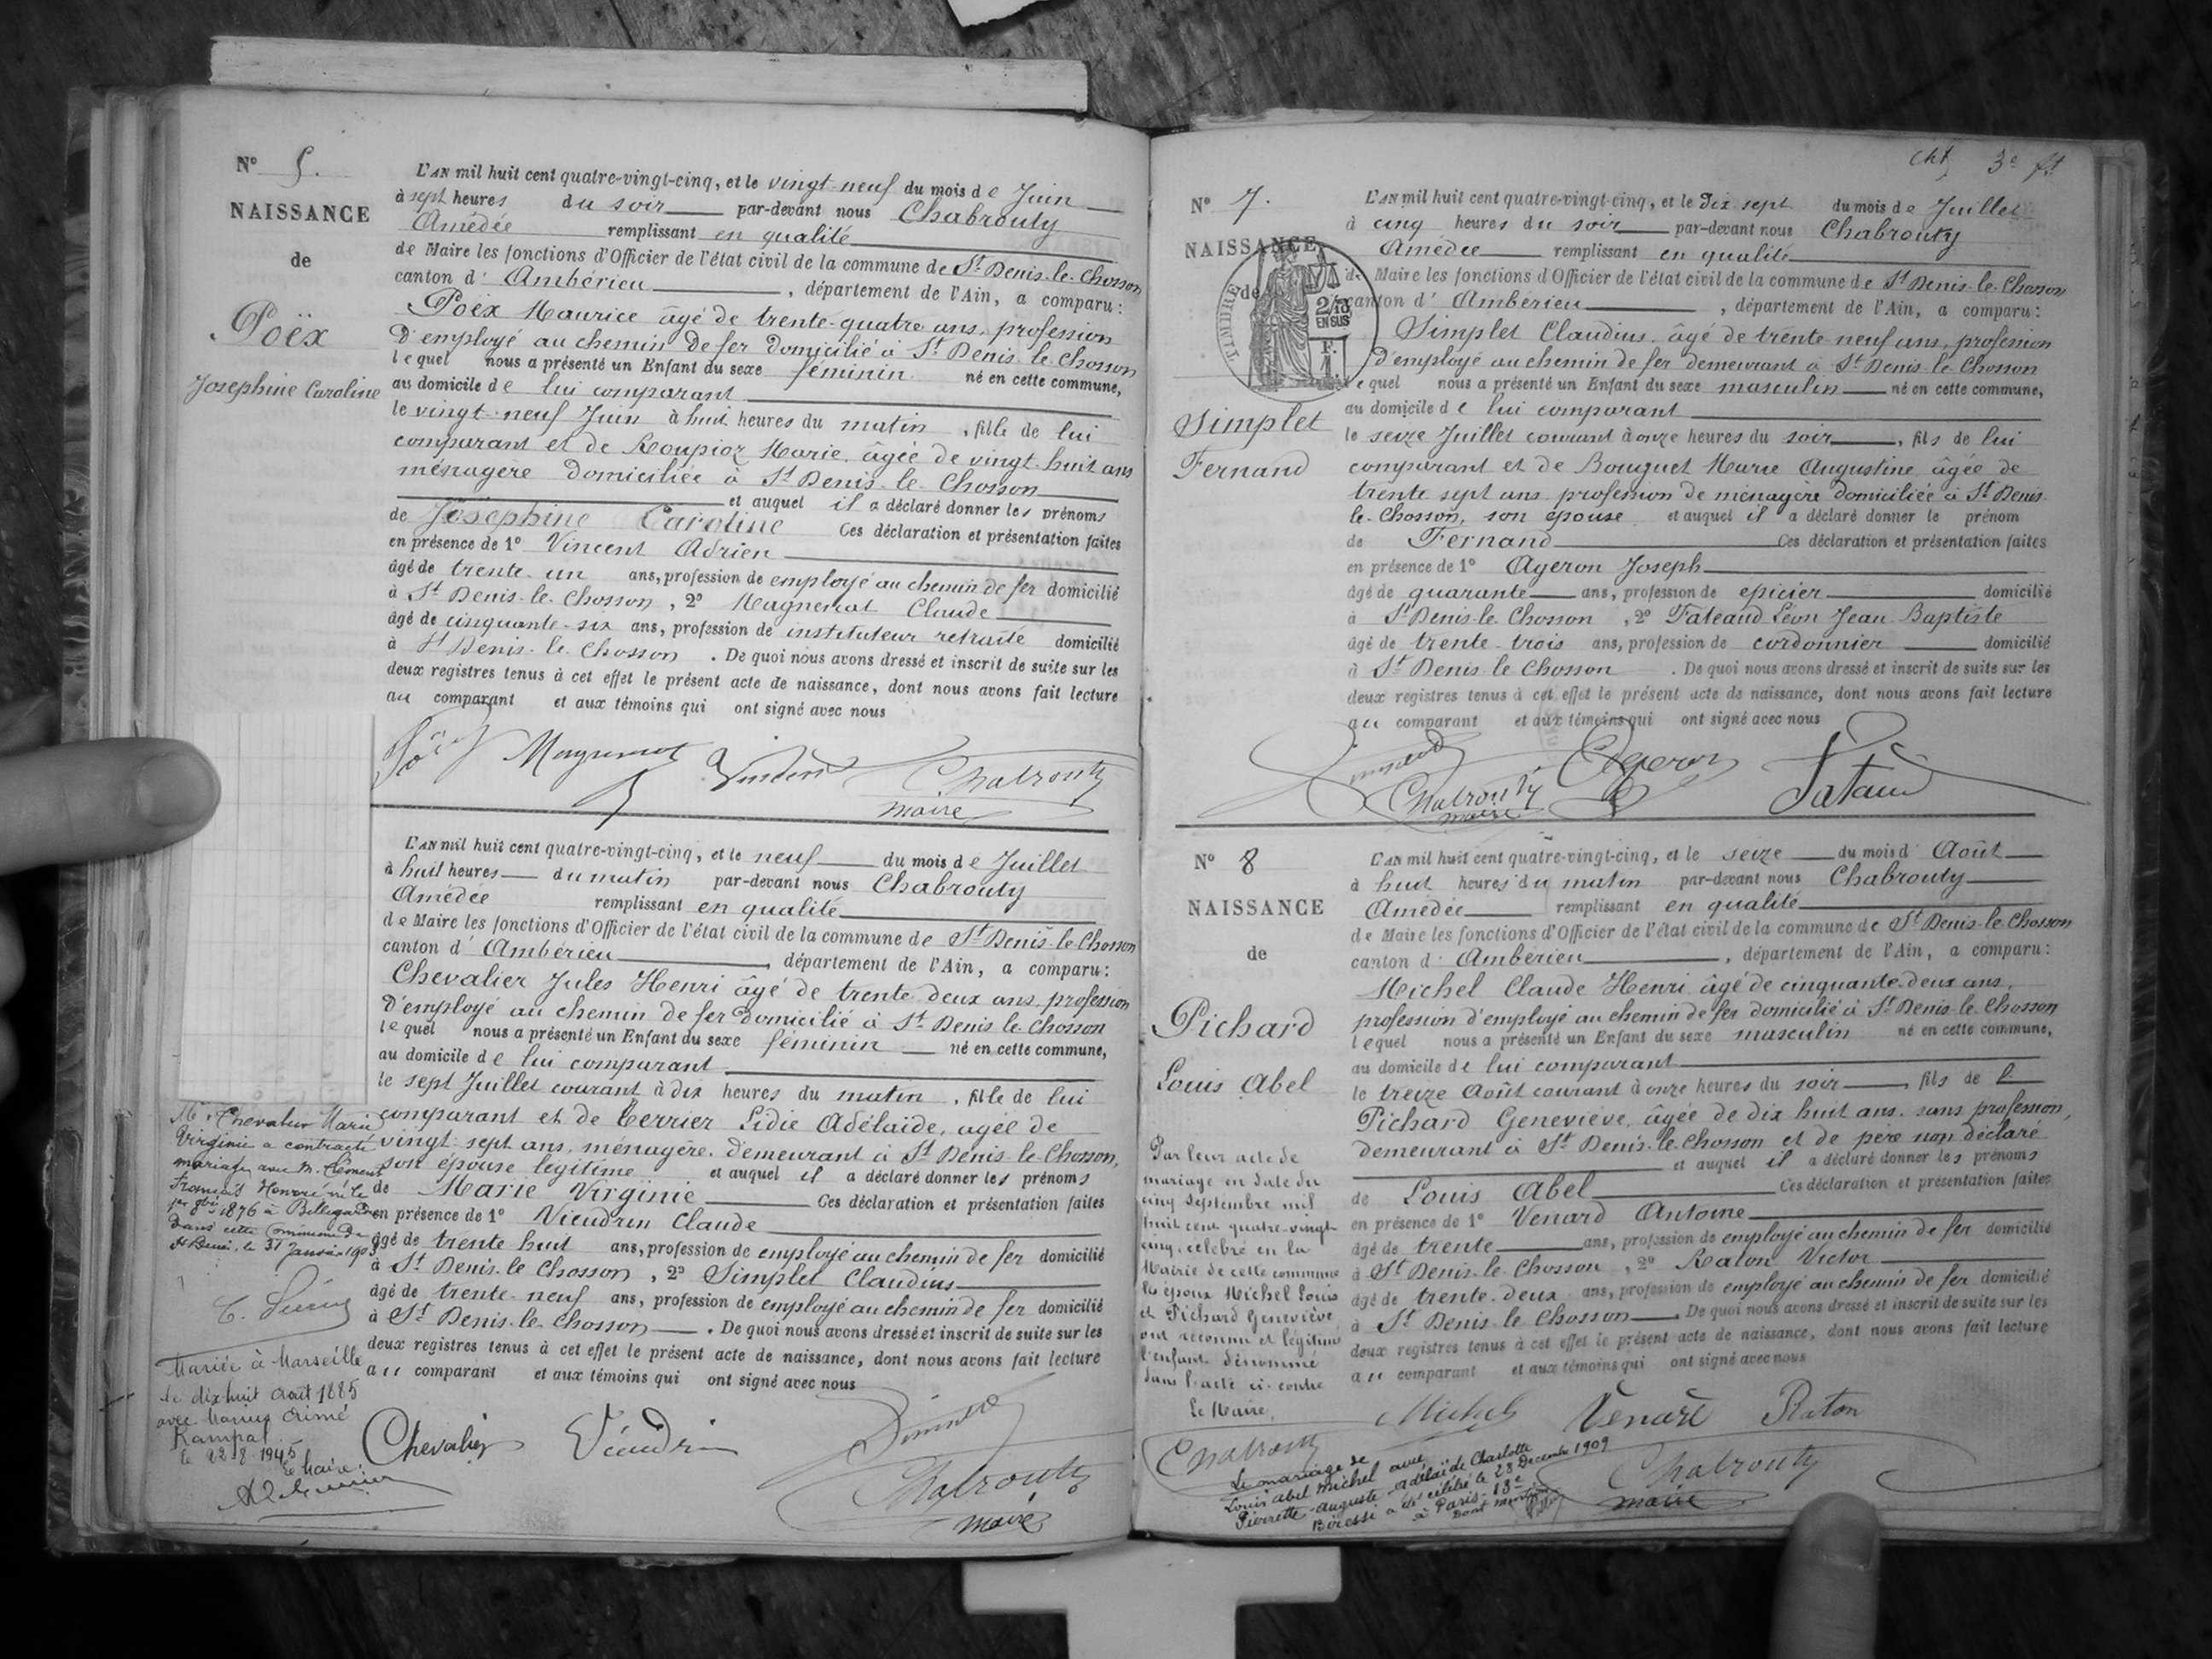 N° 5.
NAISSANCE
de
Poëx
Josephine Caroline
L'AN mil huit cent quatre-vingt-cinq, et le vingt-neuf du mois de Juin
à sept heures du soir par-devant nous Chabrouty
Amédée remplissant en qualité
de Maire les fonctions d'Officier de l'état civil de la commune de St Denis-le-Chosson
canton d' Ambérieu, département de l'Ain, a comparu:
Poëx Maurice âgé de trente-quatre ans, profession
d'employé au chemin de fer domicilié à St Denis-le-Chosson
lequel nous a présenté un Enfant du sexe féminin né en cette commune,
au domicile de lui comparant
le vingt-neuf Juin à huit heures du matin, fille de lui
comparant et de Roupioz Marie, âgée de vingt-huit ans
ménagère domiciliée à St Denis-le-Chosson
et auquel il a déclaré donner les prénoms
de Joséphine Caroline Ces déclaration et présentation faites
en présence de 1° Vincent Adrien
âgé de trente-un ans, profession de employé au chemin de fer domicilié
à St Denis-le-Chosson, 2° Magnenat Claude
âgé de cinquante-six ans, profession de instituteur retraité domicilié
à St Denis-le-Chosson. De quoi nous avons dressé et inscrit de suite sur les
deux registres tenus à cet effet le présent acte de naissance, dont nous avons fait lecture
au comparant et aux témoins qui ont signé avec nous
Chabrouty
maire
L'AN mil huit cent quatre-vingt-cinq, et le neuf du mois de Juillet
à huit heures du matin par-devant nous Chabrouty
Amédée remplissant en qualité
de Maire les fonctions d'Officier de l'état civil de la commune de St Denis-le-Chosson
canton d' Ambérieu, département de l'Ain, a comparu:
Chevalier Jules Henri âgé de trente-deux ans, profession
d'employé au chemin de fer domicilié à St Denis-le-Chosson
lequel nous a présenté un Enfant du sexe féminin né en cette commune,
au domicile de lui comparant
le sept Juillet courant à dix heures du matin, fille de lui
comparant et de Terrier Lidie Adélaïde, agée de
vingt-sept ans, ménagère, demeurant à St Denis-le-Chosson,
son épouse légitime et auquel il a déclaré donner les prénoms
de Marie Virginie Ces déclaration et présentation faites
en présence de 1° Vieudrin Claude
âgé de trente-huit ans, profession de employé au chemin de fer domicilié
à St Denis-le-Chosson, 2° Simplet Claudius
âgé de trente-neuf ans, profession de employé au chemin de fer domicilié
à St Denis-le-Chosson. De quoi nous avons dressé et inscrit de suite sur les
deux registres tenus à cet effet le présent acte de naissance, dont nous avons fait lecture
au comparant et aux témoins qui ont signé avec nous
Chevalier Vieudrin
Chabrouty
maire
Chevalier Marie
Virginie a contracté
mariage avec M. Clément
François Honoré né le
1er 8bre 1876 à Bellegarde
dans cette commune de
St Denis, le 31 Janvier 190
Mariée à Marseille
le dix huit Août 1885
avec Marius Aimé
Rampal
le 22-8-1945
le Maire:
cht 3e ft
N° 7.
NAISSANCE
de
TIMBRE
2/10
EN SUS
F.
1.
Simplet
Fernand
L'AN mil huit cent quatre-vingt-cinq, et le Dix sept du mois de Juillet
à cinq heures du soir par-devant nous Chabrouty
Amédée remplissant en qualité
de Maire les fonctions d'Officier de l'état civil de la commune de St Denis-le-Chosson
canton d' Ambérieu, département de l'Ain, a comparu:
Simplet Claudius, âgé de trente-neuf ans, profession
d'employé au chemin de fer demeurant à St Denis-le-Chosson
lequel nous a présenté un Enfant du sexe masculin né en cette commune,
au domicile de lui comparant
le seize Juillet courant à onze heures du soir, fils de lui
comparant et de Bouquet Marie Augustine, âgée de
trente sept ans, profession de ménagère domiciliée à St Denis-
le-Chosson, son épouse et auquel il a déclaré donner le prénom
de Fernand Ces déclaration et présentation faites
en présence de 1° Ageron Joseph
âgé de quarante ans, profession de epicier domicilié
à St Denis-le-Chosson, 2° Fateaud Léon Jean Baptiste
âgé de trente-trois ans, profession de cordonnier domicilié
à St Denis-le-Chosson. De quoi nous avons dressé et inscrit de suite sur les
deux registres tenus à cet effet le présent acte de naissance, dont nous avons fait lecture
au comparant et aux témoins qui ont signé avec nous
Chabrouty
maire
Ageron
N° 8
NAISSANCE
de
Pichard
Louis Abel
L'AN mil huit cent quatre-vingt-cinq, et le seize du mois d' Août
à huit heures du matin par-devant nous Chabrouty
Amédée remplissant en qualité
de Maire les fonctions d'Officier de l'état civil de la commune de St Denis-le-Chosson
canton d' Ambérieu, département de l'Ain, a comparu:
Michel Claude Henri âgé de cinquante-deux ans,
profession d'employé au chemin de fer domicilié à St Denis-le-Chosson
lequel nous a présenté un Enfant du sexe masculin né en cette commune,
au domicile de lui comparant
le treize Août courant à onze heures du soir, fils de
Pichard Geneviève, âgée de dix huit ans, sans profession,
demeurant à St Denis-le-Chosson et de père non déclaré
et auquel il a déclaré donner les prénoms
de Louis Abel Ces déclaration et présentation faites
en présence de 1° Venard Antoine
âgé de trente ans, profession de employé au chemin de fer domicilié
à St Denis-le-Chosson, 2° Raton Victor
âgé de trente-deux ans, profession de employé au chemin de fer domicilié
à St Denis-le-Chosson. De quoi nous avons dressé et inscrit de suite sur les
deux registres tenus à cet effet le présent acte de naissance, dont nous avons fait lecture
au comparant et aux témoins qui ont signé avec nous
Michel Venard Raton
Chabrouty
maire
Par leur acte de
mariage en date du
cinq Septembre mil
huit cent quatre-vingt
cinq, célébré en la
Mairie de cette commune
les époux Michel Louis
et Pichard Geneviève
ont reconnu et légitimé
l'enfant dénommé
dans l'acte ci-contre
Le Maire,
Chabrouty
Le mariage de
Louis Abel Michel avec
Pierrette-Auguste-Adélaïde Charlotte
Biressi a été célébré le 28 Decembre 1909
à Paris-13e
Dont mention